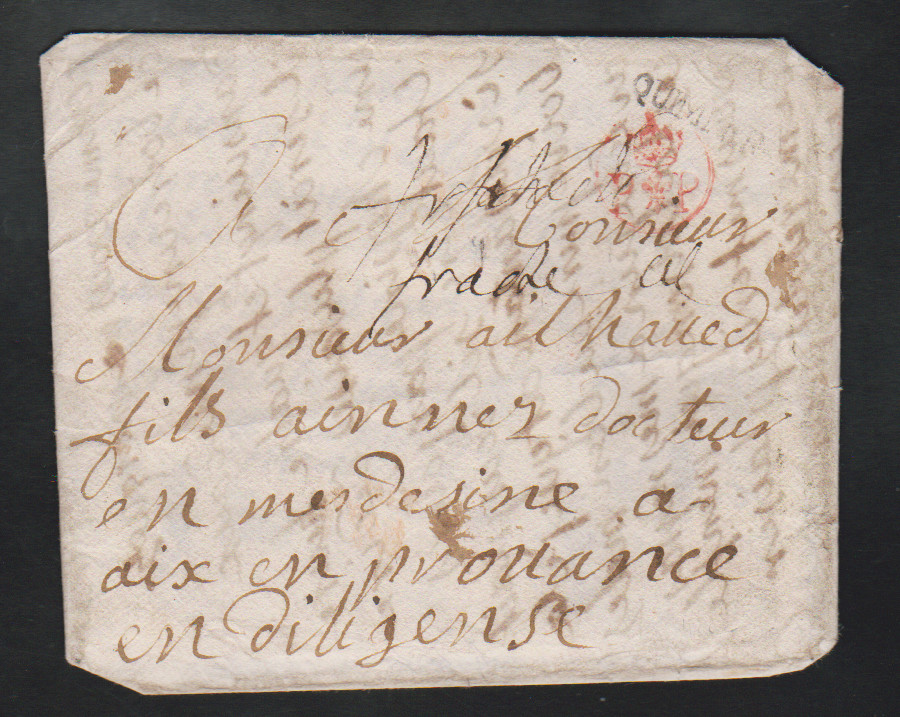 QUIMPER
A Monsieur
Monsieur ailhaued
fils ainnez docteur
en merdesine a
aix en prouance
en diligense